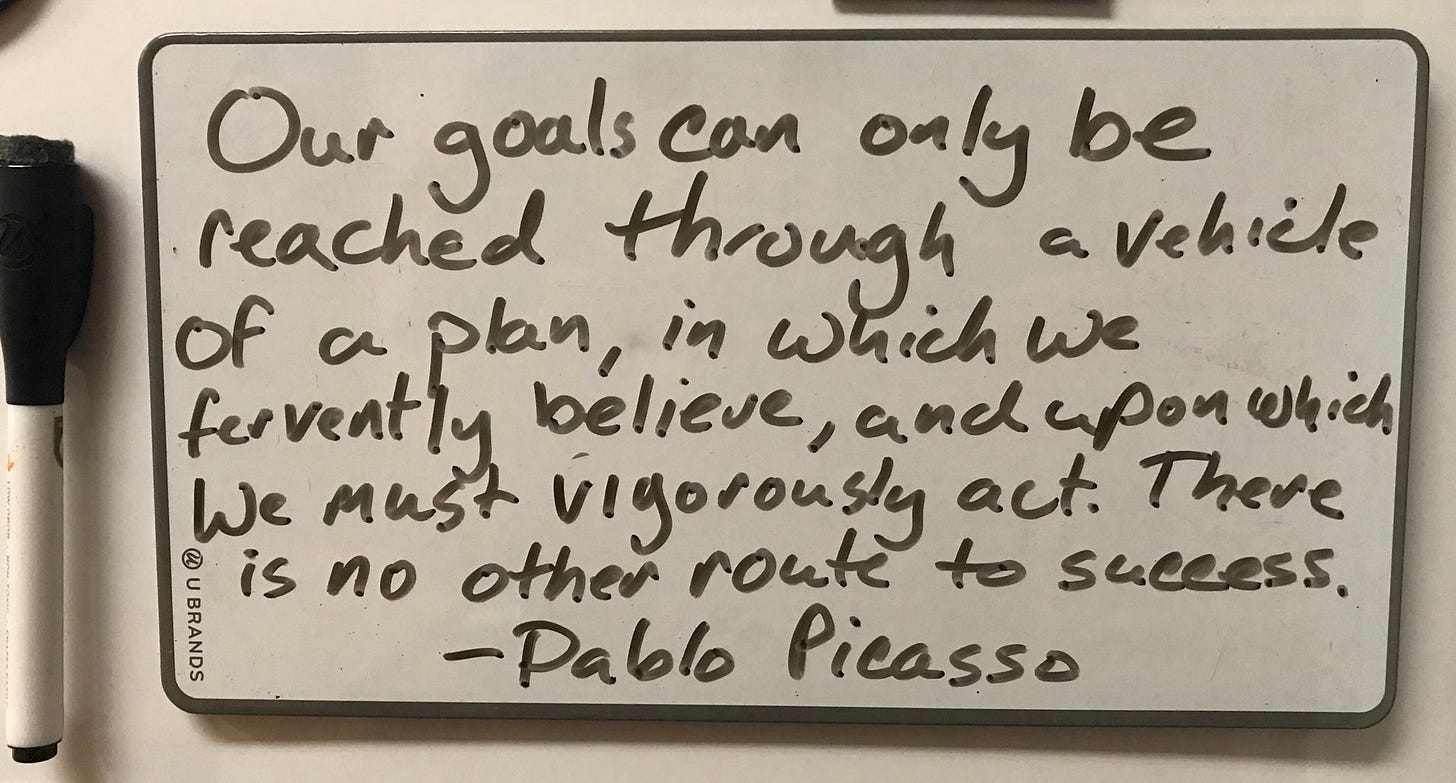 Our goals can only be
reached through a vehicle
of a plan, in which we
fervently believe, and upon which
we must vigorously act. There
is no other route to success.
-Pablo Picasso
U BRANDS